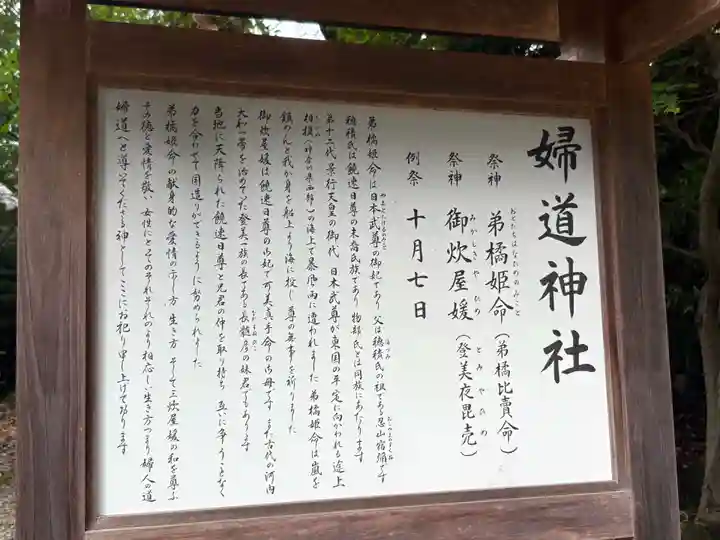 婦道神社
祭神 弟橘姫命(弟橘比賣命)
おとたちばなひめのみこと
祭神 御炊屋媛(登美夜毘売)
みかしきやひめ とみやひめ
例祭 十月七日
弟橘姫命は日本武尊の御妃であり 父は穂積氏の祖である忍山宿禰です
穂積氏は饒速日尊の末裔氏族であり 物部氏とは同族にあたります
第十二代 景行天皇の御代 日本武尊が東国の平定に向かわれる途上
相模(神奈川県西部)の海上で暴風雨に遭われました 弟橘姫命は嵐を
鎮めんと我が身を船上より海に投じ 尊の無事を祈りました
御炊屋媛は饒速日尊の御妃で可美真手命の御母です また古代の河内
大和一帯を治めていた登美一族の長である長髄彦の妹君でもあります
当地に天降られた饒速日尊と兄君の仲を取り持ち 互いに争うことなく
力を合わせて国造りができるように努められました
弟橘姫命の献身的な愛情の示し方 生き方 そして三炊屋媛の和を尊ぶ
その徳と愛情を敬い 女性にとってのそれぞれのより相応しい生き方つまり婦人の道
婦道へと導いてくださる神としてここにお祀り申し上げて居ります